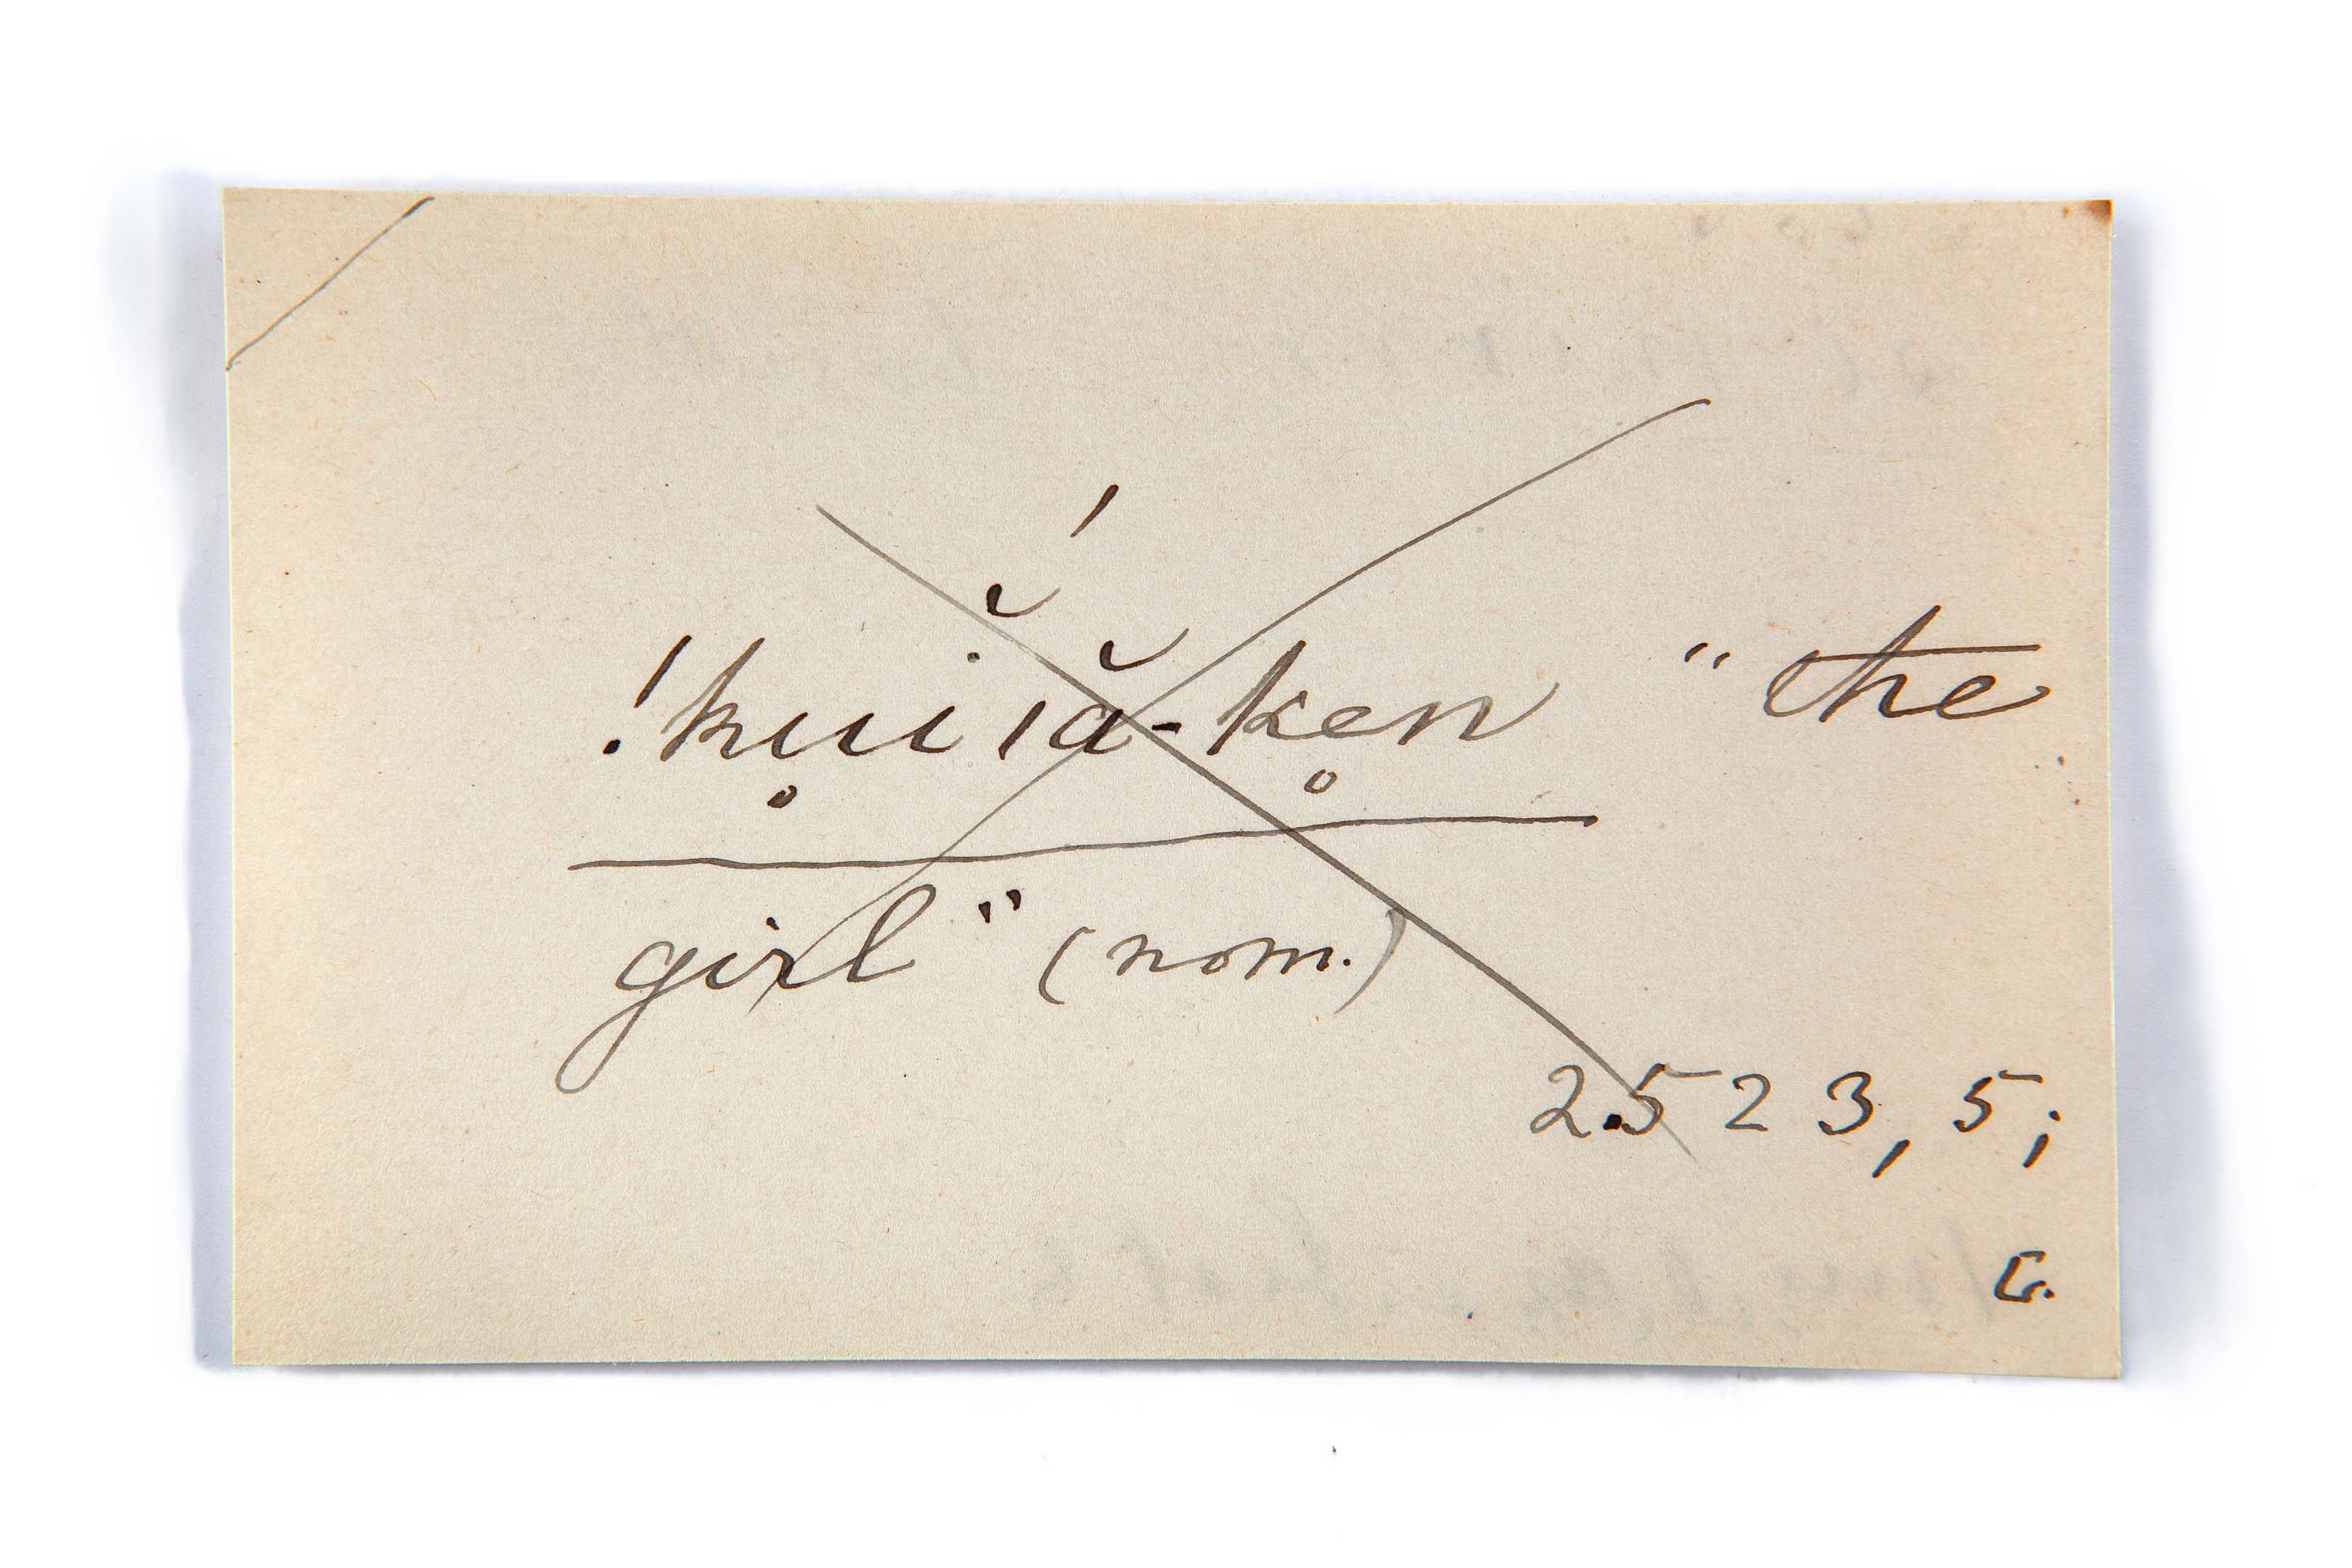 !ku̥ĭıắ-ke̥n "the
girl" (nom.)
2.523,5;
G.